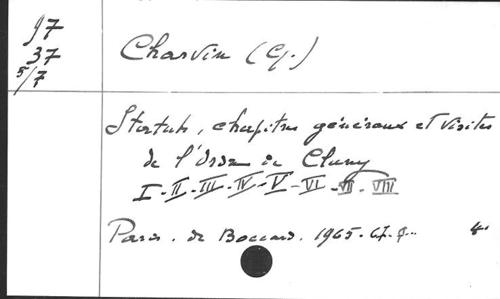 97
37
5/7
Charvin (G.)
Statuts, chapitres généraux et visites
de l'Ordre de Cluny
I-II-III-IV-V-VI-VII-VIII
Paris. de Boccard. 1965-67-9... 4°